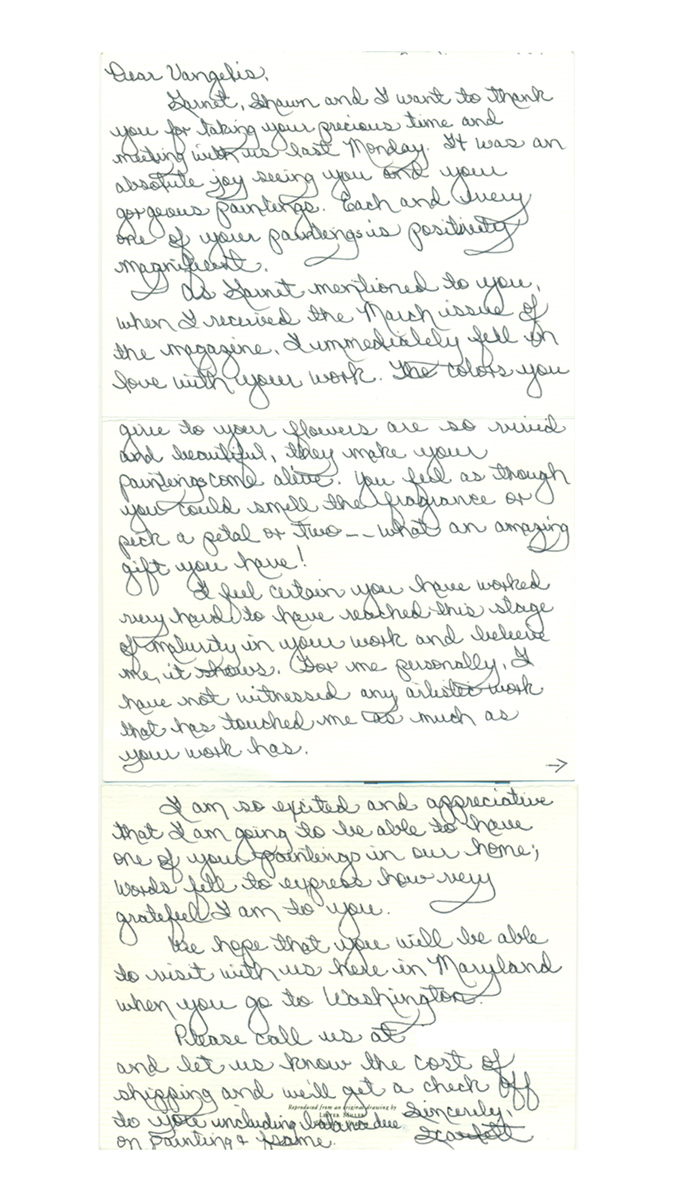 Dear Vangelis,
Garnet, Shawn and I want to thank
you for taking your precious time and
meeting with us last Monday. It was an
absolute joy seeing you and your
gorgeous paintings. Each and every
one of your paintings is positively
magnificent.
As Garnet mentioned to you,
when I received the March issue of
the magazine, I immediately fell in
love with your work. The colors you
give to your flowers are so vivid
and beautiful, they make your
paintings come alive. You feel as though
you could smell the fragrance or
pick a petal or two -- what an amazing
gift you have!
I feel certain you have worked
very hard to have reached this stage
of maturity in your work and believe
me, it shows. For me personally, I
have not witnessed any artistic work
that has touched me as much as
your work has.
→
I am so excited and appreciative
that I am going to be able to have
one of your paintings in our home;
words fell to express how very
grateful I am to you.
We hope that you will be able
to visit with us here in Maryland
when you go to Washington.
Please call us at
and let us know the cost of
shipping and we'll get a check off
Reproduced from an original drawing by
to you including balance due Sincerely,
on painting & frame. Scarlett